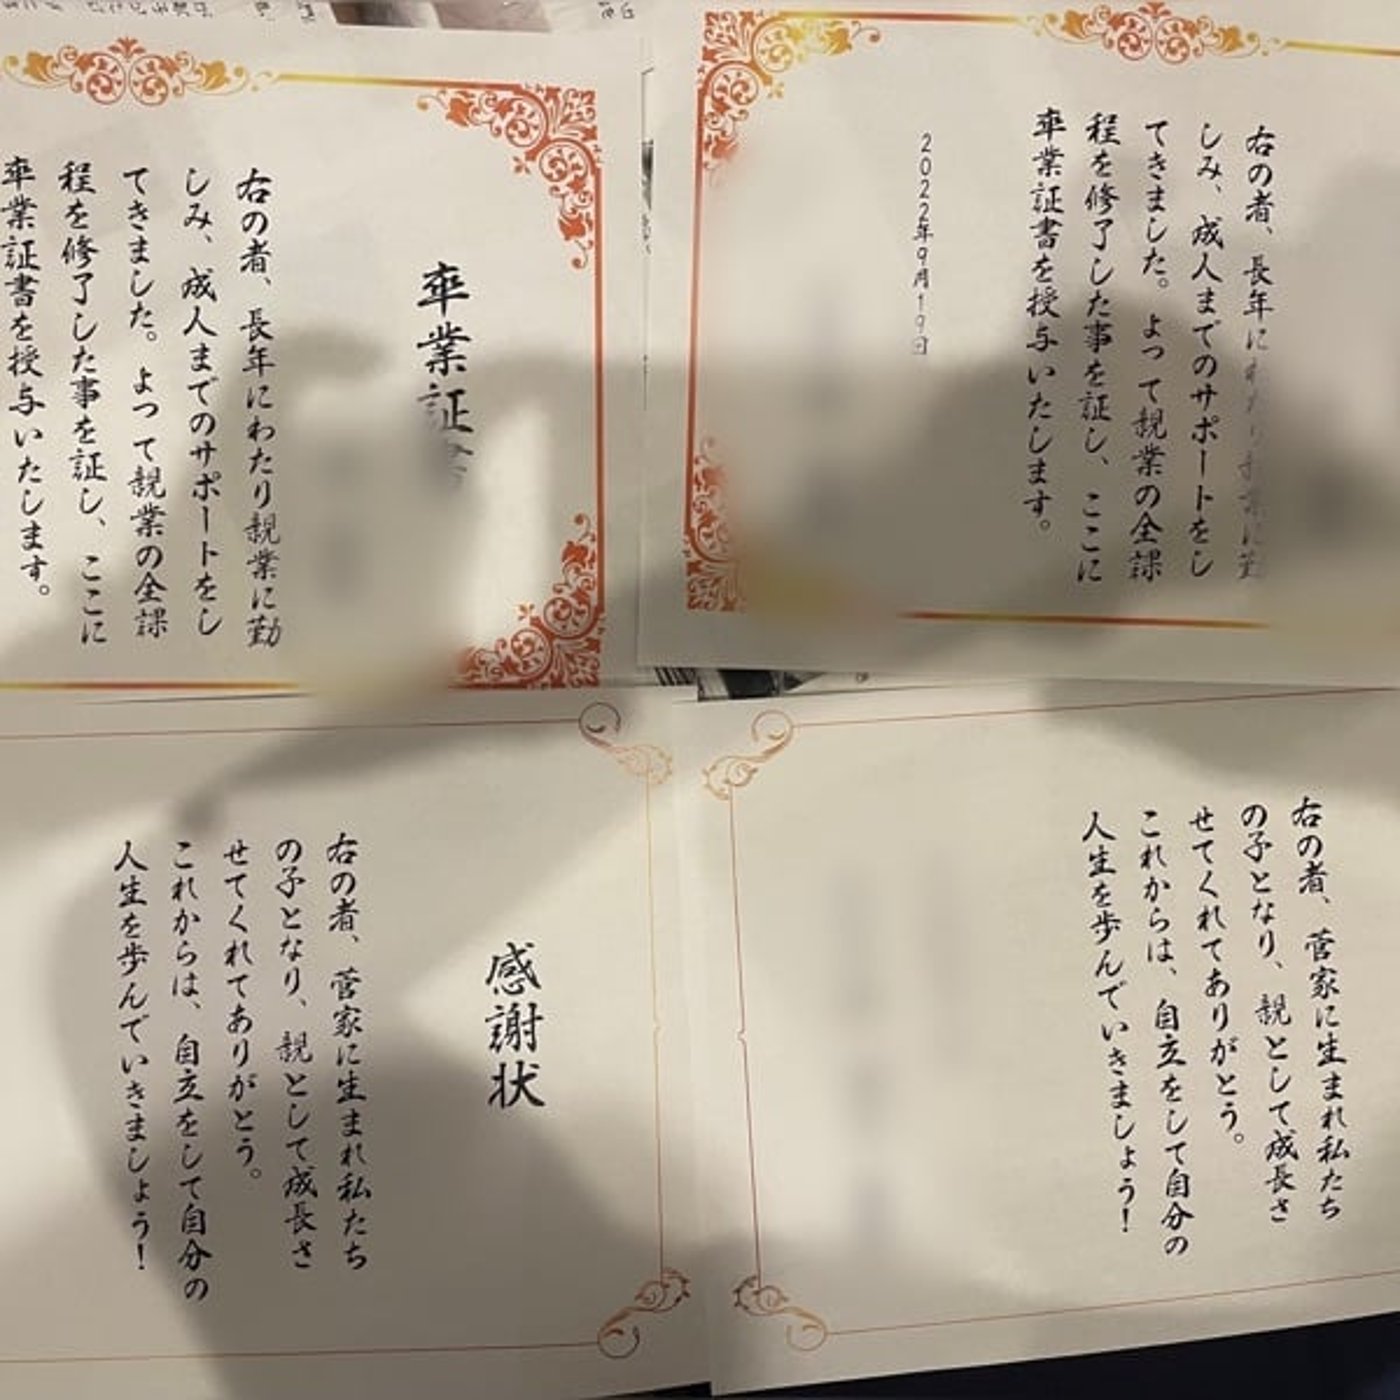 卒業証
右の者、長年にわたり親業に勤
しみ、成人までのサポートをし
てきました。よって親業の全課
程を修了した事を証し、ここに
卒業証書を授与いたします。
右の者、長年にわたり親業に勤
しみ、成人までのサポートをし
てきました。よって親業の全課
程を修了した事を証し、ここに
卒業証書を授与いたします。
2022年9月19日
感謝状
右の者、菅家に生まれ私たち
の子となり、親として成長さ
せてくれてありがとう。
これからは、自立をして自分の
人生を歩んでいきましょう!
右の者、菅家に生まれ私たち
の子となり、親として成長さ
せてくれてありがとう。
これからは、自立をして自分の
人生を歩んでいきましょう!